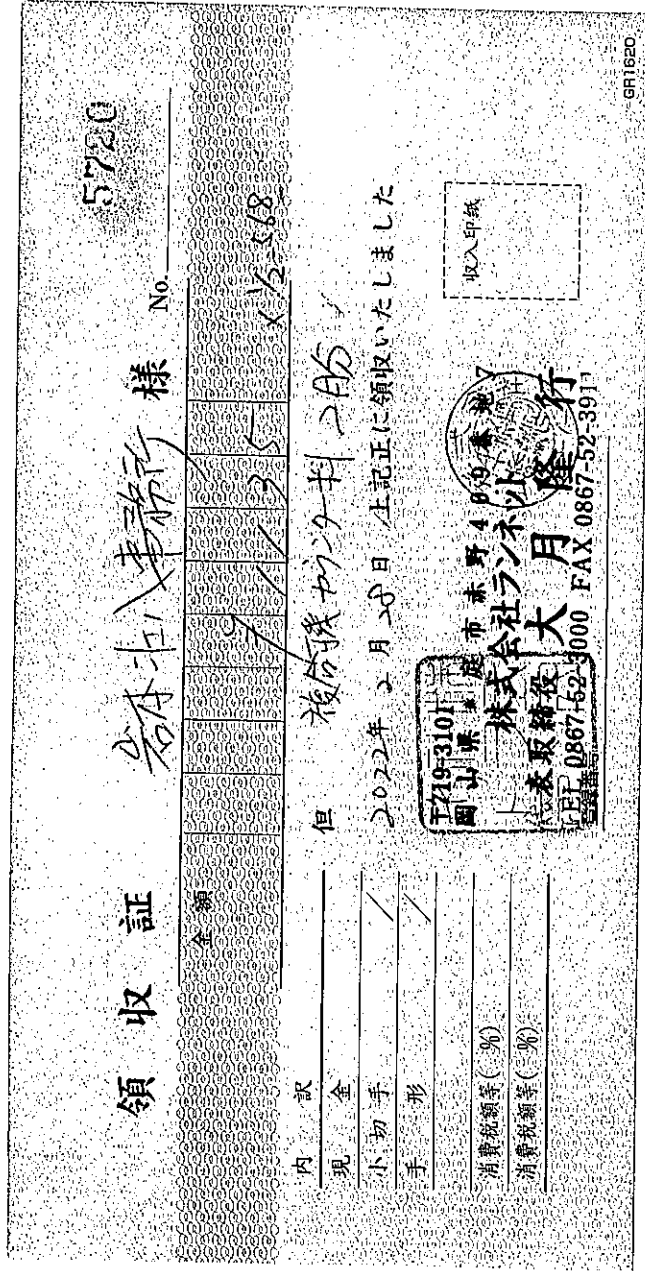 領収証
様 No. 5720
金額 ¥1135 × 1/2 = 568
但 複合機カウンター料 2月分
2022年 2月 28日 上記正に領収いたしました
内訳
現金
小切手
手形
消費税額等( %)
消費税額等( %)
収入印紙
〒719-3101
岡山県真庭市赤野469番地7
株式会社ランネット
代表取締役 大月隆行
TEL 0867-52-3000 FAX 0867-52-3911
登録番号
GR1620